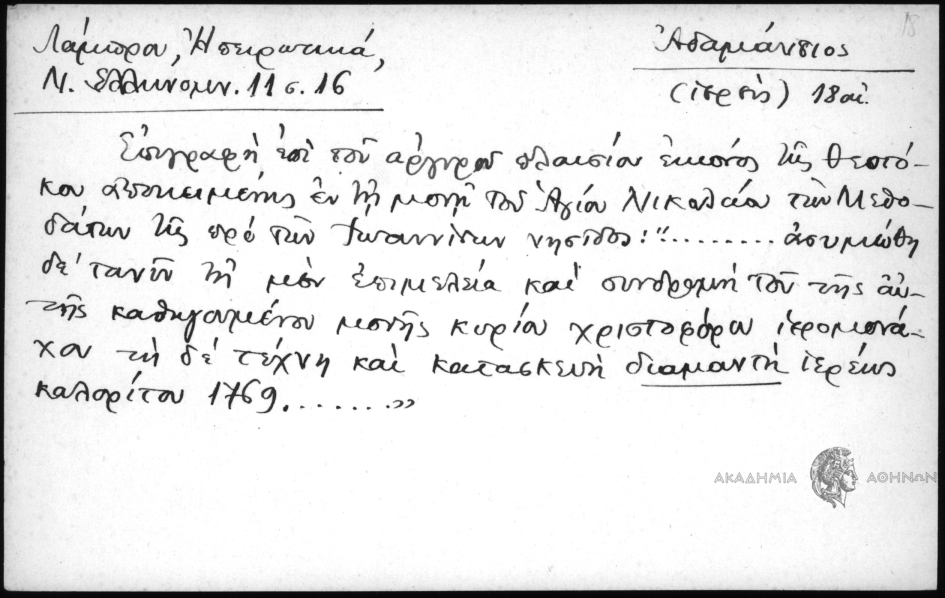 Λάμπρου, Ἠπειρωτικά,
Ν. Ἑλληνομν. 11 σ. 16
Ἀδαμάντιος
(ἱερεὺς) 18 αἰ.
Ἐπιγραφὴ ἐπὶ τοῦ ἀργυροῦ πλαισίου εἰκόνος τῆς Θεοτό-
κου ἀποκειμένης ἐν τῇ μονῇ τοῦ Ἁγίου Νικολάου τῶν Μεθο-
δάτων τῆς πρὸ τῶν Ἰωαννίνων νησῖδος: "......... ἀσυμιώθη
δὲ τανῦν τῇ μὲν ἐπιμελείᾳ καὶ συνδρομῇ τοῦ τῆς αὐ-
τῆς καθηγουμένου μονῆς κυρίου χριστοφόρου ἱερομονά-
χου τῇ δὲ τέχνῃ καὶ κατασκευῇ διαμαντῆ ἱερέως
καλορίτου 1769. ....... »
ΑΚΑΔΗΜΙΑ ΑΘΗΝΩΝ